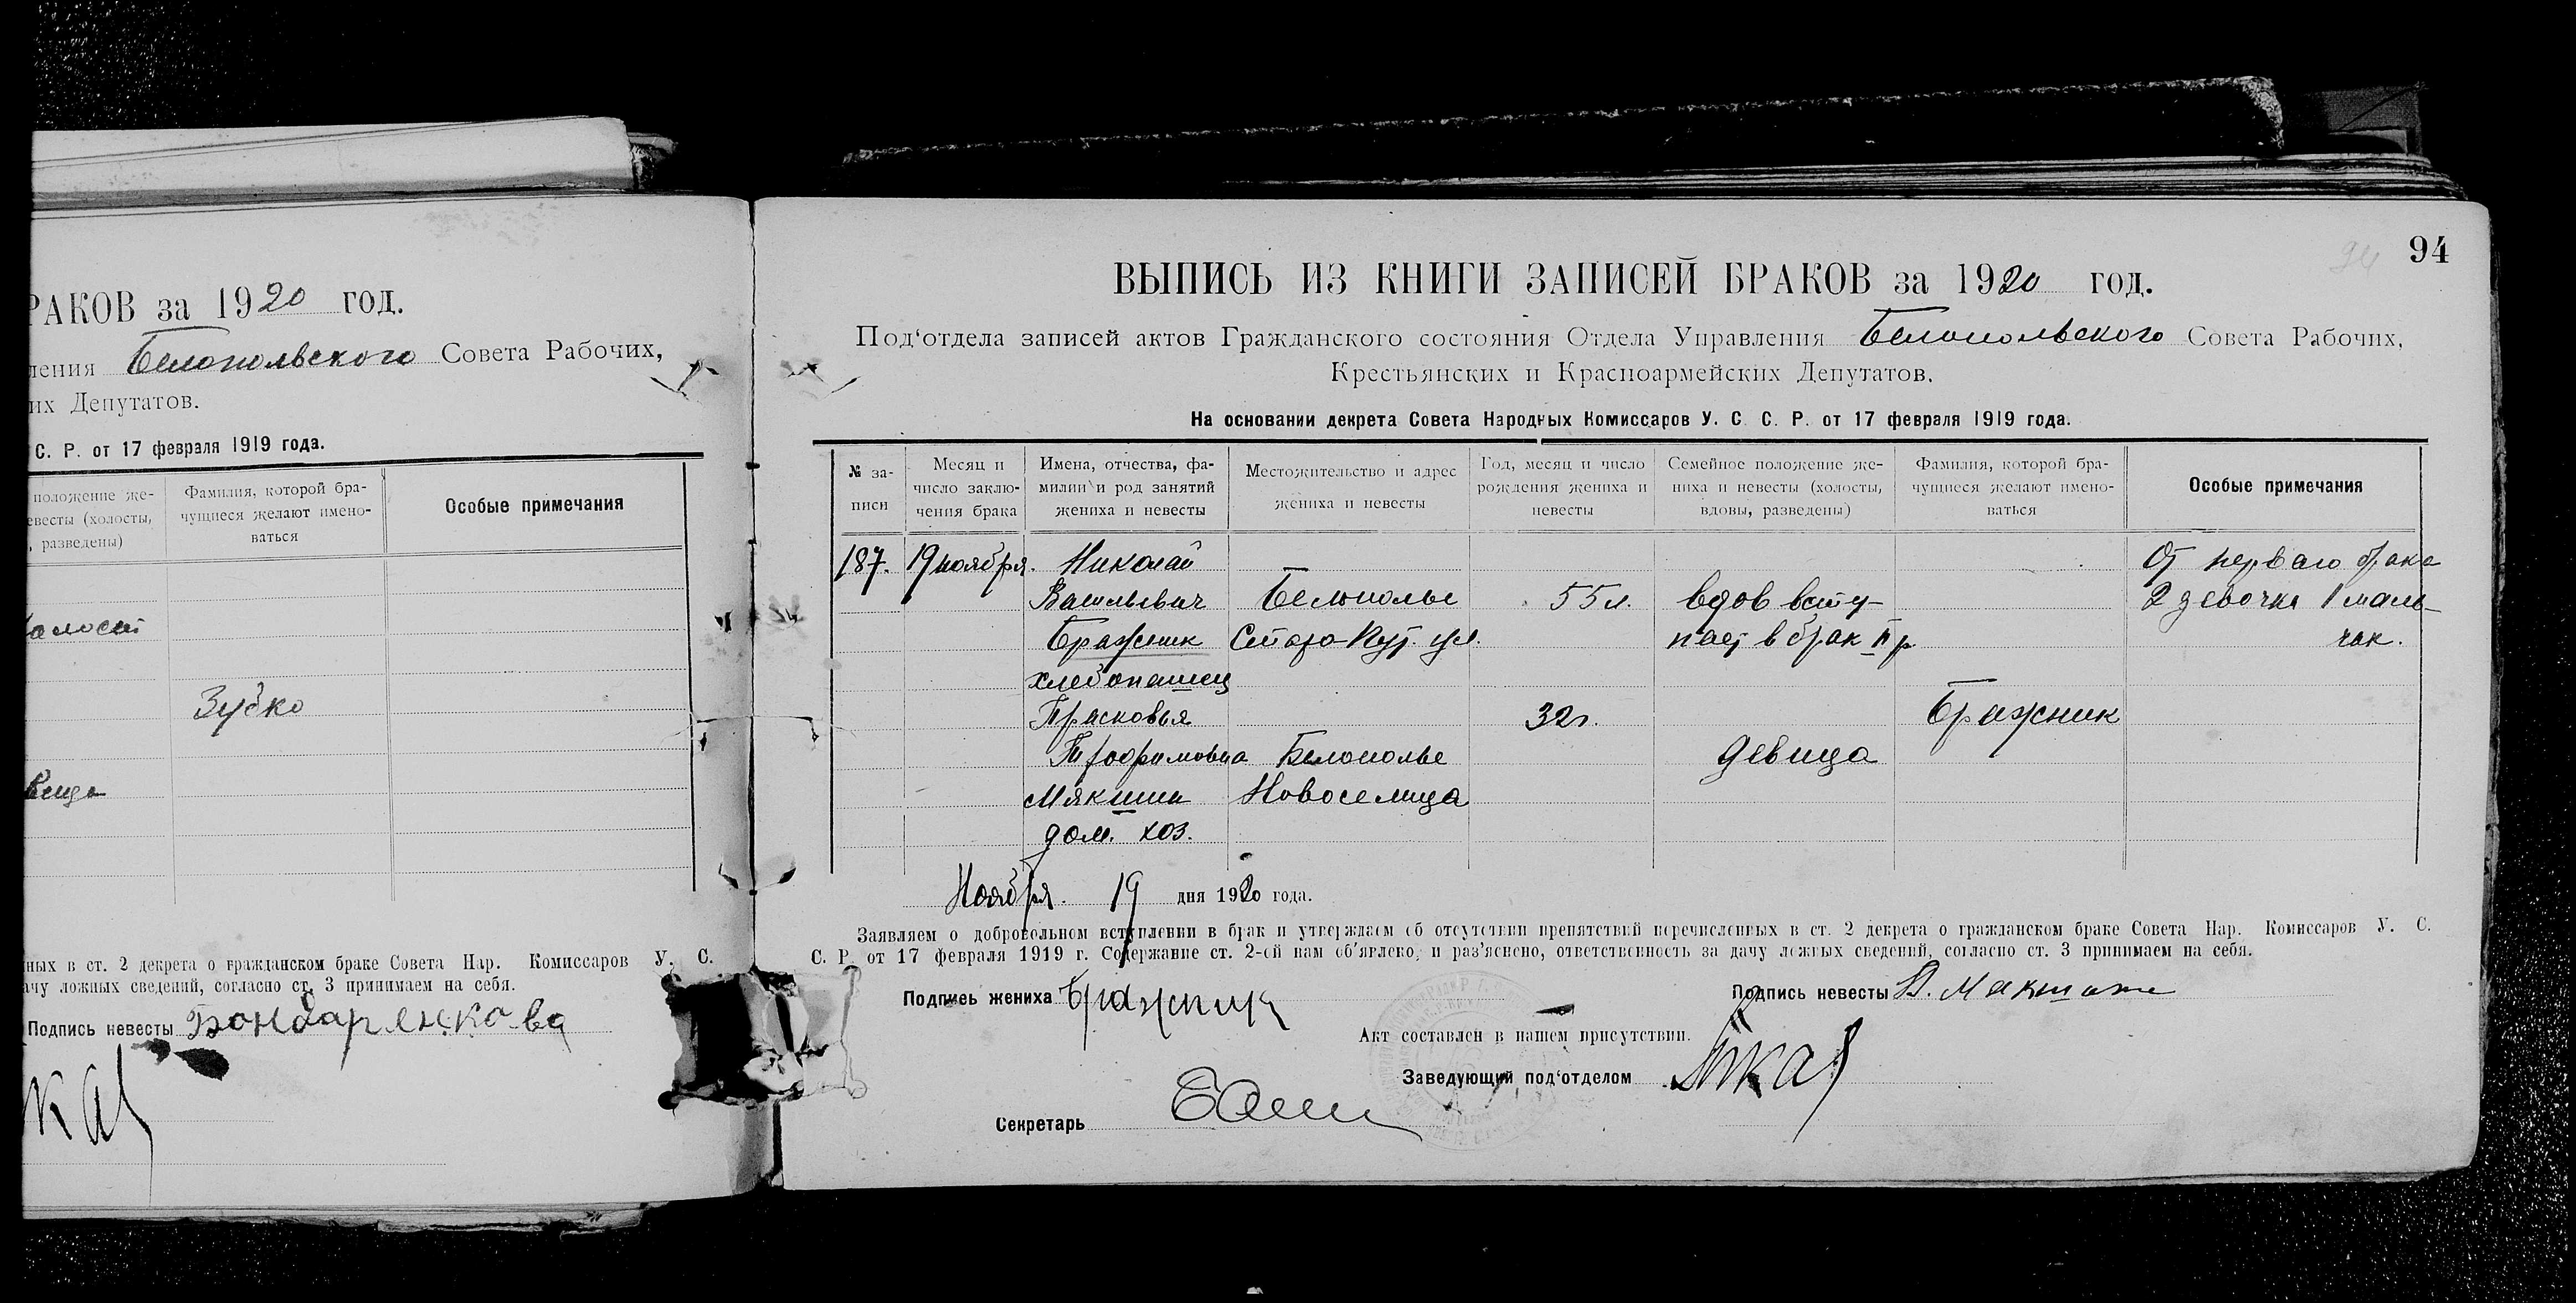 РАКОВ за 1920 год.
ления Белопольского Совета Рабочих,
их Депутатов.
С. Р. от 17 февраля 1919 года.
положение же-
евесты (холосты,
, разведены)
Фамилия, которой бра-
чущиеся желают имено-
ваться
Особые примечания
Зубко
ных в ст. 2 декрета о гражданском браке Совета Нар. Комиссаров У. С.
ачу ложных сведений, согласно ст. 3 принимаем на себя.
Подпись невесты Бондаренкова
94
94
ВЫПИСЬ ИЗ КНИГИ ЗАПИСЕЙ БРАКОВ за 1920 год.
Под‘отдела записей актов Гражданского состояния Отдела Управления Белопольского Совета Рабочих,
Крестьянских и Красноармейских Депутатов.
На основании декрета Совета Народных Комиссаров У. С. С. Р. от 17 февраля 1919 года.
№ за-
писи
Месяц и
число заклю-
чения брака
Имена, отчества, фа-
милии и род занятий
жениха и невесты
Местожительство и адрес
жениха и невесты
Год, месяц и число
рождения жениха и
невесты
Семейное положение же-
ниха и невесты (холосты,
вдовы, разведены)
Фамилия, которой бра-
чущиеся желают имено-
ваться
Особые примечания
187. 19 ноября. Николай От перваго брака
Васильевич Белополье 55 л. вдов всту- 2 девочки 1 маль-
Бражник Старо-Пут. ул. пает в брак II р чик.
хлебопашец
Прасковья 32 г. Бражник
Трофимовна Белополье девица
Мякшин Новоселица
дом. хоз.
Ноября. 19 дня 1920 года.
Заявляем о добровольном вступлении в брак и утверждаем об отсутствии препятствий перечисленных в ст. 2 декрета о гражданском браке Совета Нар. Комиссаров У. С.
С. Р. от 17 февраля 1919 г. Содержание ст. 2-ой нам об‘явлено, и раз‘яснено, ответственность за дачу ложных сведений, согласно ст. 3 принимаем на себя.
Подпись жениха Бражник
Подпись невесты
Акт составлен в нашем присутствии.
Заведующий под‘отделом
Секретарь